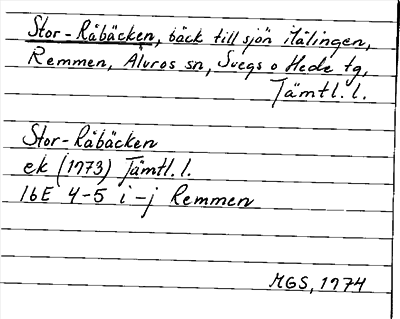 Stor-Råbäcken, bäck till sjön Hålingen,
Remmen, Älvros sn, Svegs o Hede tg,
Jämtl. l.
Stor-Råbäcken
ek (1973) Jämtl. l.
16E 4-5 i-j Remmen
MGS, 1974